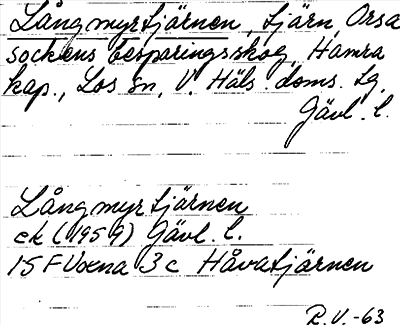 Långmyrtjärnen, tjärn, Orsa
sockens besparingsskog, Hamra
kap., Los sn, V. Häls. doms. tg,
Gävl. l.
Långmyrtjärnen
ek (1959) Gävl. l.
15 F Voxna 3 c Håvatjärnen
R.V.-63